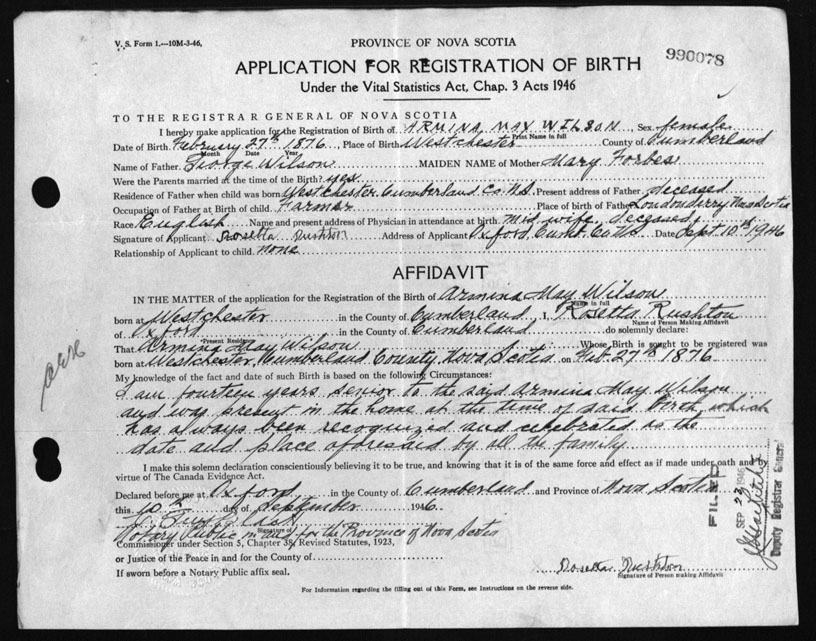 V. S. Form 1.—10M-3-46.
PROVINCE OF NOVA SCOTIA
990078
APPLICATION FOR REGISTRATION OF BIRTH
Under the Vital Statistics Act, Chap. 3 Acts 1946
TO THE REGISTRAR GENERAL OF NOVA SCOTIA
I hereby make application for the Registration of Birth of ARMINA MAY WILSON, Sex female
Print Name in full
Date of Birth February 27th 1876, Place of Birth Westchester County of Cumberland
Month Date Year
Name of Father George Wilson MAIDEN NAME of Mother Mary Forbes
Were the Parents married at the time of the Birth? yes
Residence of Father when child was born Westchester Cumberland Co. N.S. Present address of Father deceased
Occupation of Father at Birth of child Farmer Place of birth of Father Londonderry Nova Scotia
Race English Name and present address of Physician in attendance at birth. Mid wife, deceased
Signature of Applicant Rosetta Rushton Address of Applicant Oxford, Cumb. Co. N.S. Date Sept 10th 1946
Relationship of Applicant to child none
AFFIDAVIT
IN THE MATTER of the application for the Registration of the Birth of Armina May Wilson
Name in full
born at Westchester in the County of Cumberland I, Rosetta Rushton
Name of Person Making Affidavit
of Oxford in the County of Cumberland do solemnly declare:
Present Residence
That Armina May Wilson Whose Birth is sought to be registered was
born at Westchester, Cumberland County, Nova Scotia on Feb. 27th 1876
My knowledge of the fact and date of such Birth is based on the following Circumstances:
I am fourteen years senior to the said Armina May Wilson
and was present in the home at the time of said Birth, which
has always been recognized and celebrated as the
date and place aforesaid by all the family
I make this solemn declaration conscientiously believing it to be true, and knowing that it is of the same force and effect as if made under oath and
virtue of The Canada Evidence Act.
Declared before me at Oxford in the County of Cumberland and Province of Nova Scotia
this 10th day of September 1946
Signature of
Notary Public in and for the Province of Nova Scotia
Commissioner under Section 5, Chapter 38, Revised Statutes, 1923,
or Justice of the Peace in and for the County of
If sworn before a Notary Public affix seal.
Rosetta Rushton
Signature of Person making Affidavit
For Information regarding the filling out of this Form, see Instructions on the reverse side.
FILED
SEP 23 1946
Deputy Registrar General